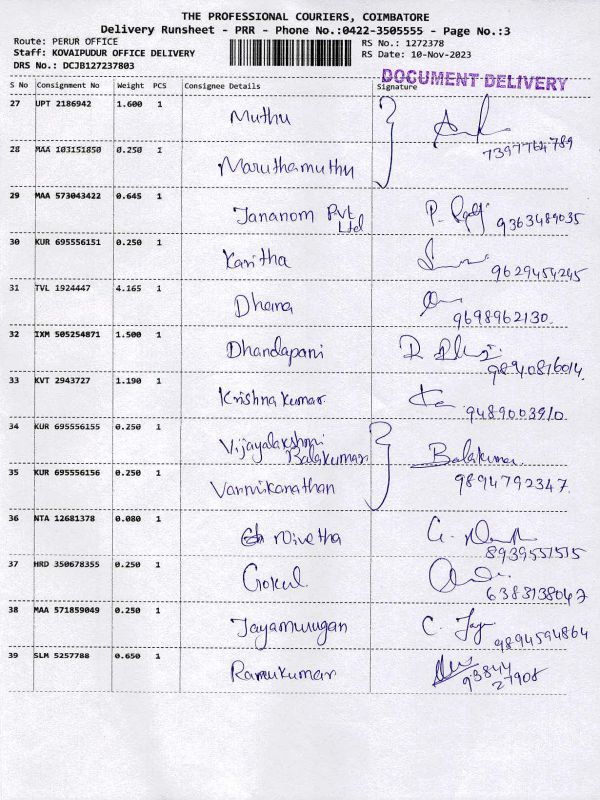 THE PROFESSIONAL COURIERS, COIMBATORE
Delivery Runsheet - PRR - Phone No.:0422-3505555 - Page No.:3
Route: PERUR OFFICE
RS No.: 1272378
Staff: KOVAIPUDUR OFFICE DELIVERY
RS Date: 10-Nov-2023
DRS No.: DCJB127237803
DOCUMENT DELIVERY
S No Consignment No Weight PCS Consignee Details Signature
27 UPT 2186942 1.600 1 Muthu
7397764789
28 MAA 103151850 0.250 1 Maruthamuthu
29 MAA 573043422 0.645 1 Jananom Pvt Ltd 9363489035
30 KUR 695556151 0.250 1 Karitha 9629454245
31 TVL 1924447 4.165 1 Dhana 9698962130
32 IXM 505254871 1.500 1 Dhandapani
33 KVT 2943727 1.190 1 Krishna Kumar 9489003910
34 KUR 695556155 0.250 1 Vijayalakshmi Balakumar Balakumar
9894792347
35 KUR 695556156 0.250 1 Vanmikanathan
36 NTA 12681378 0.080 1 Nivetha 8939551515
37 HRD 350678355 0.250 1 Gokul 6383138047
38 MAA 571859049 0.250 1 Jayamurugan C. Jaya 9894594864
39 SLM 5257788 0.650 1 Ramkumar 93844
27908